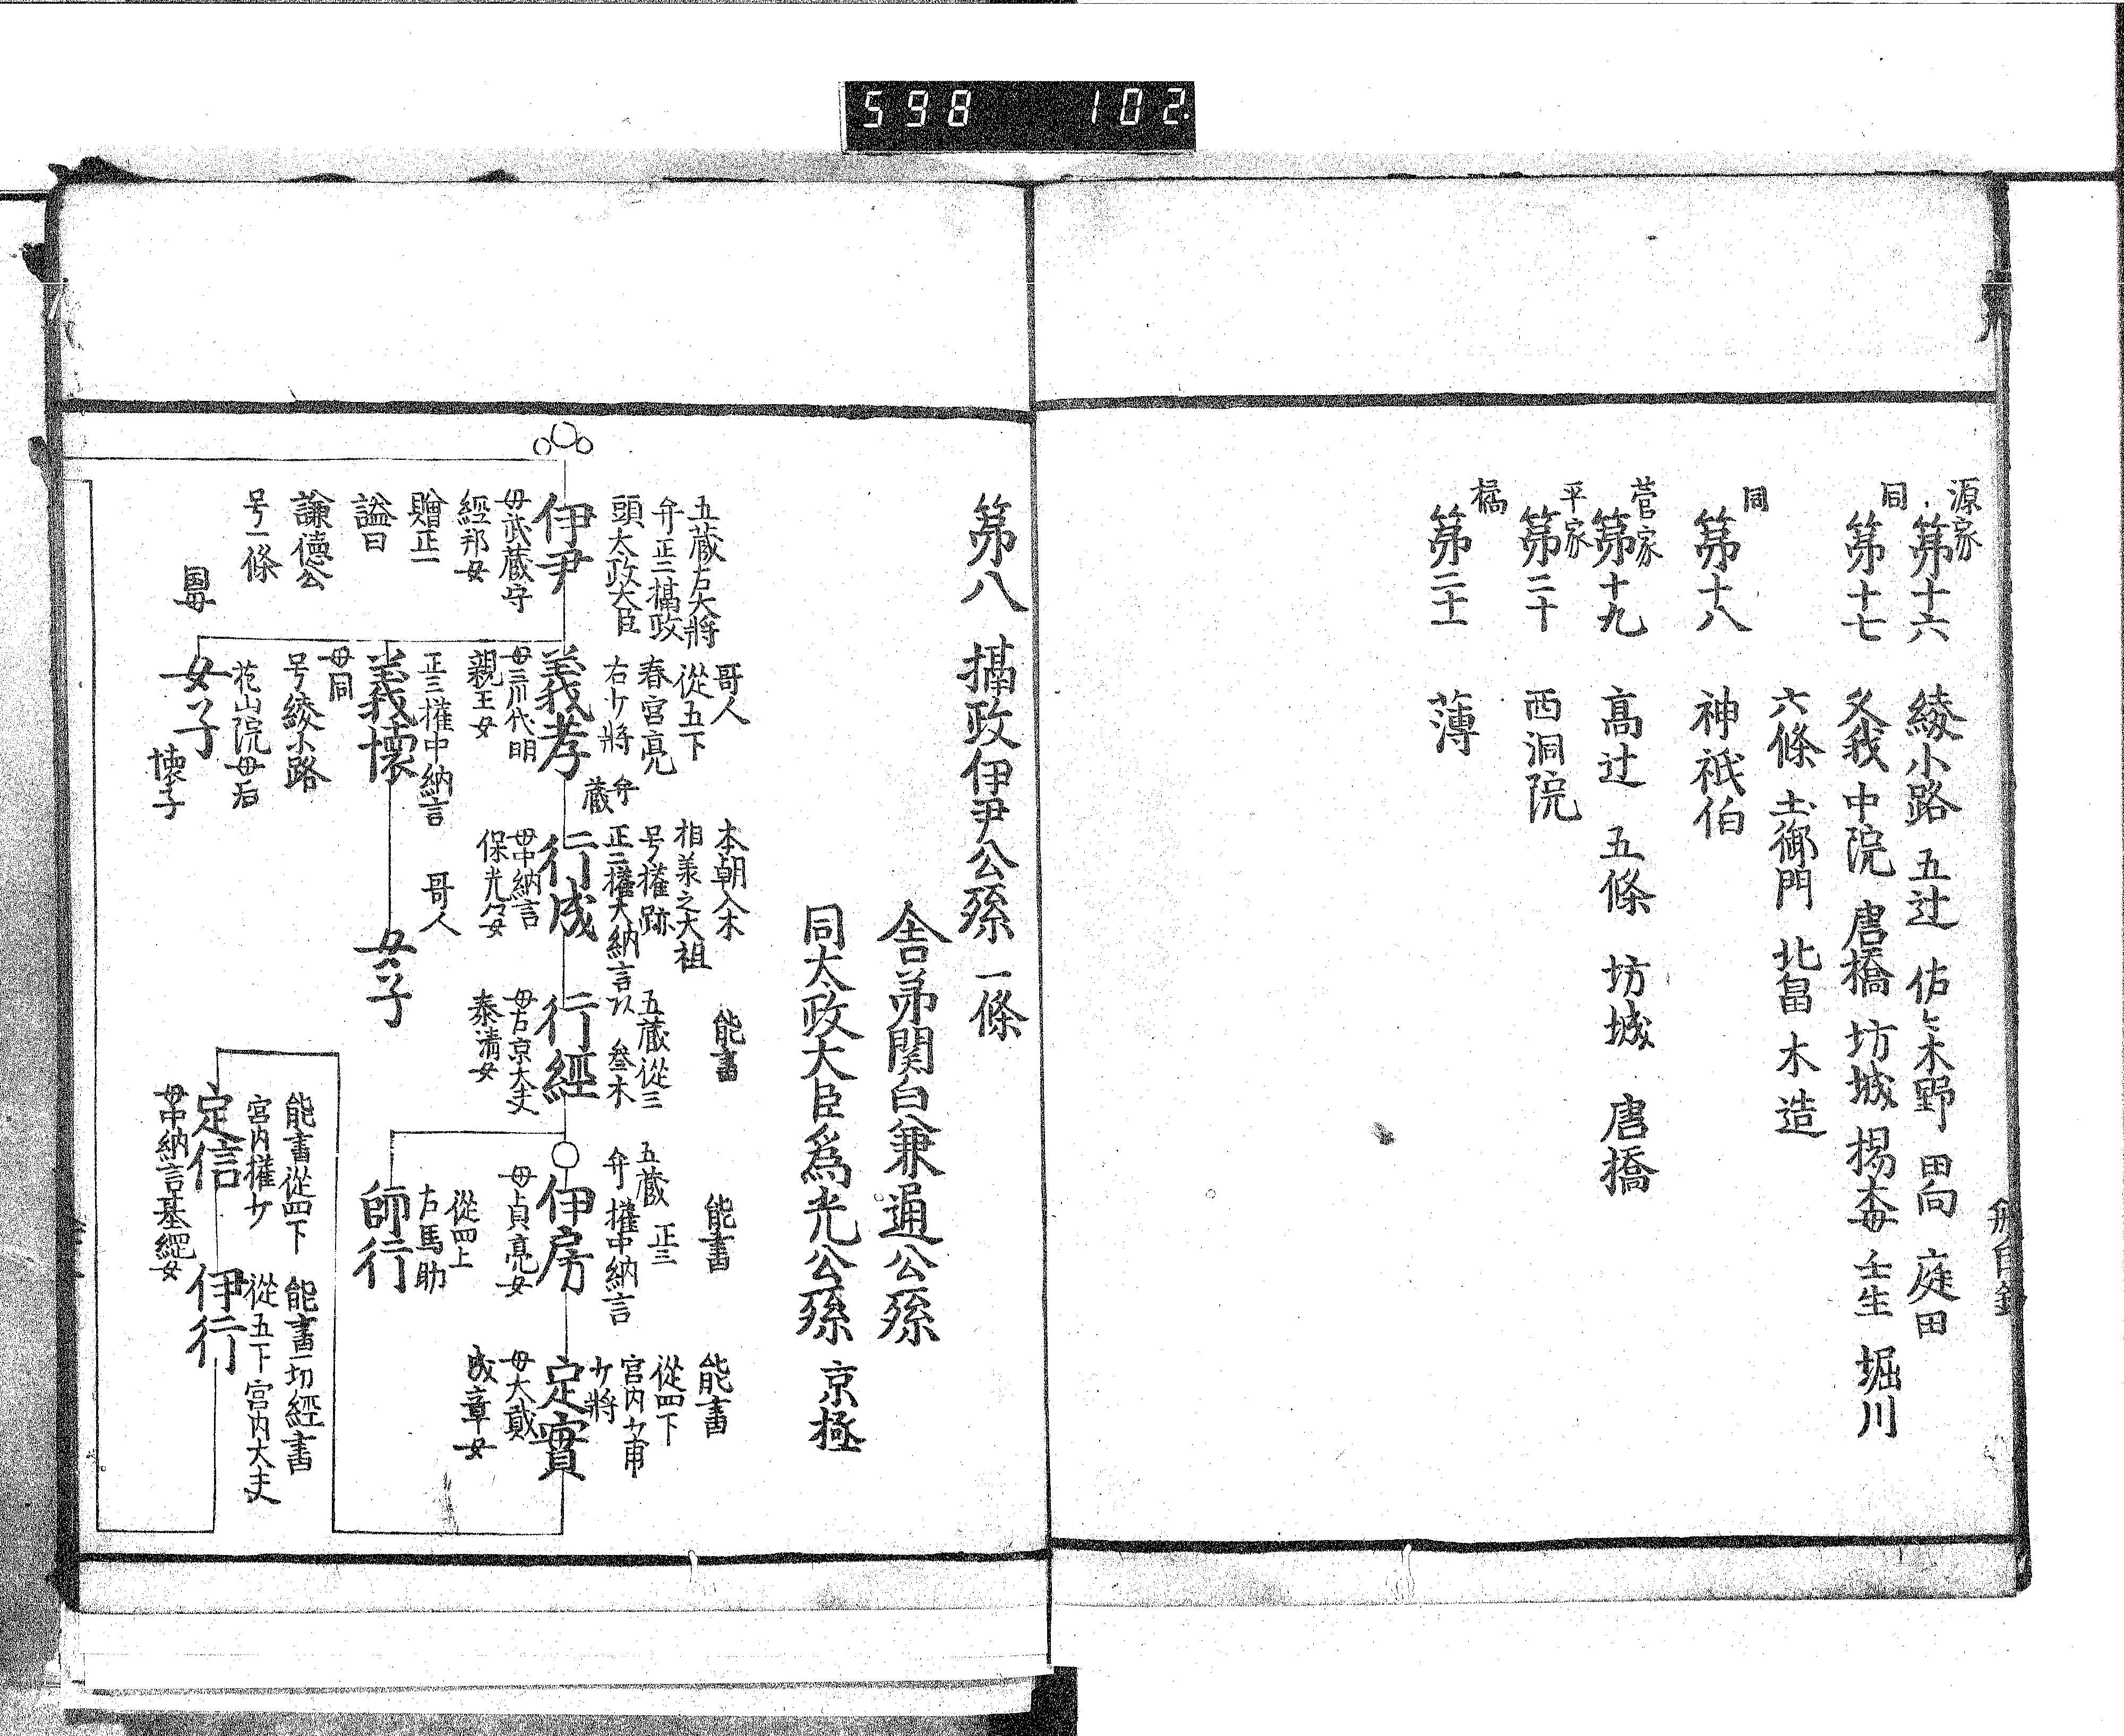 598 102
源家
第十六 綾小路 五辻 佐々木野 田向 庭田
同
第十七 久我 中院 唐橋 坊城 楊梅 壬生 堀川
六條 土御門 北畠 木造
同
第十八 神祇伯
菅家
第十九 高辻 五條 坊城 唐橋
平家
第二十 西洞院
橘
第二十一 薄
第八 攝政伊尹公孫 一條
舎弟関白兼通公孫
同太政大臣爲光公孫 京極
五蔵右大將
弁正二攝政
頭太政大臣
伊尹
母武蔵守
經邦女
贈正一
謚曰
謙徳公
号一條
哥人
從五下
春宮亮
右少將
義孝
母三川代明
親王女
弁
蔵
本朝入木
相義之大祖
号權跡
正二權大納言
行成
母中納言
保光女
能書
五蔵從三
叅木
行經
母右京大夫
泰清女
能書
五蔵 正三
弁 權中納言
伊房
母貞亮女
能書
從四下
宮内少甫
少將
定實
母大貳
成章女
正三權中納言
義懐
母同
号綾小路
哥人
女子
從四上
右馬助
師行
国母
花山院母后
女子
懐子
能書從四下
宮内權少
定信
母中納言基綱女
能書一切經書
從五下宮内大夫
伊行